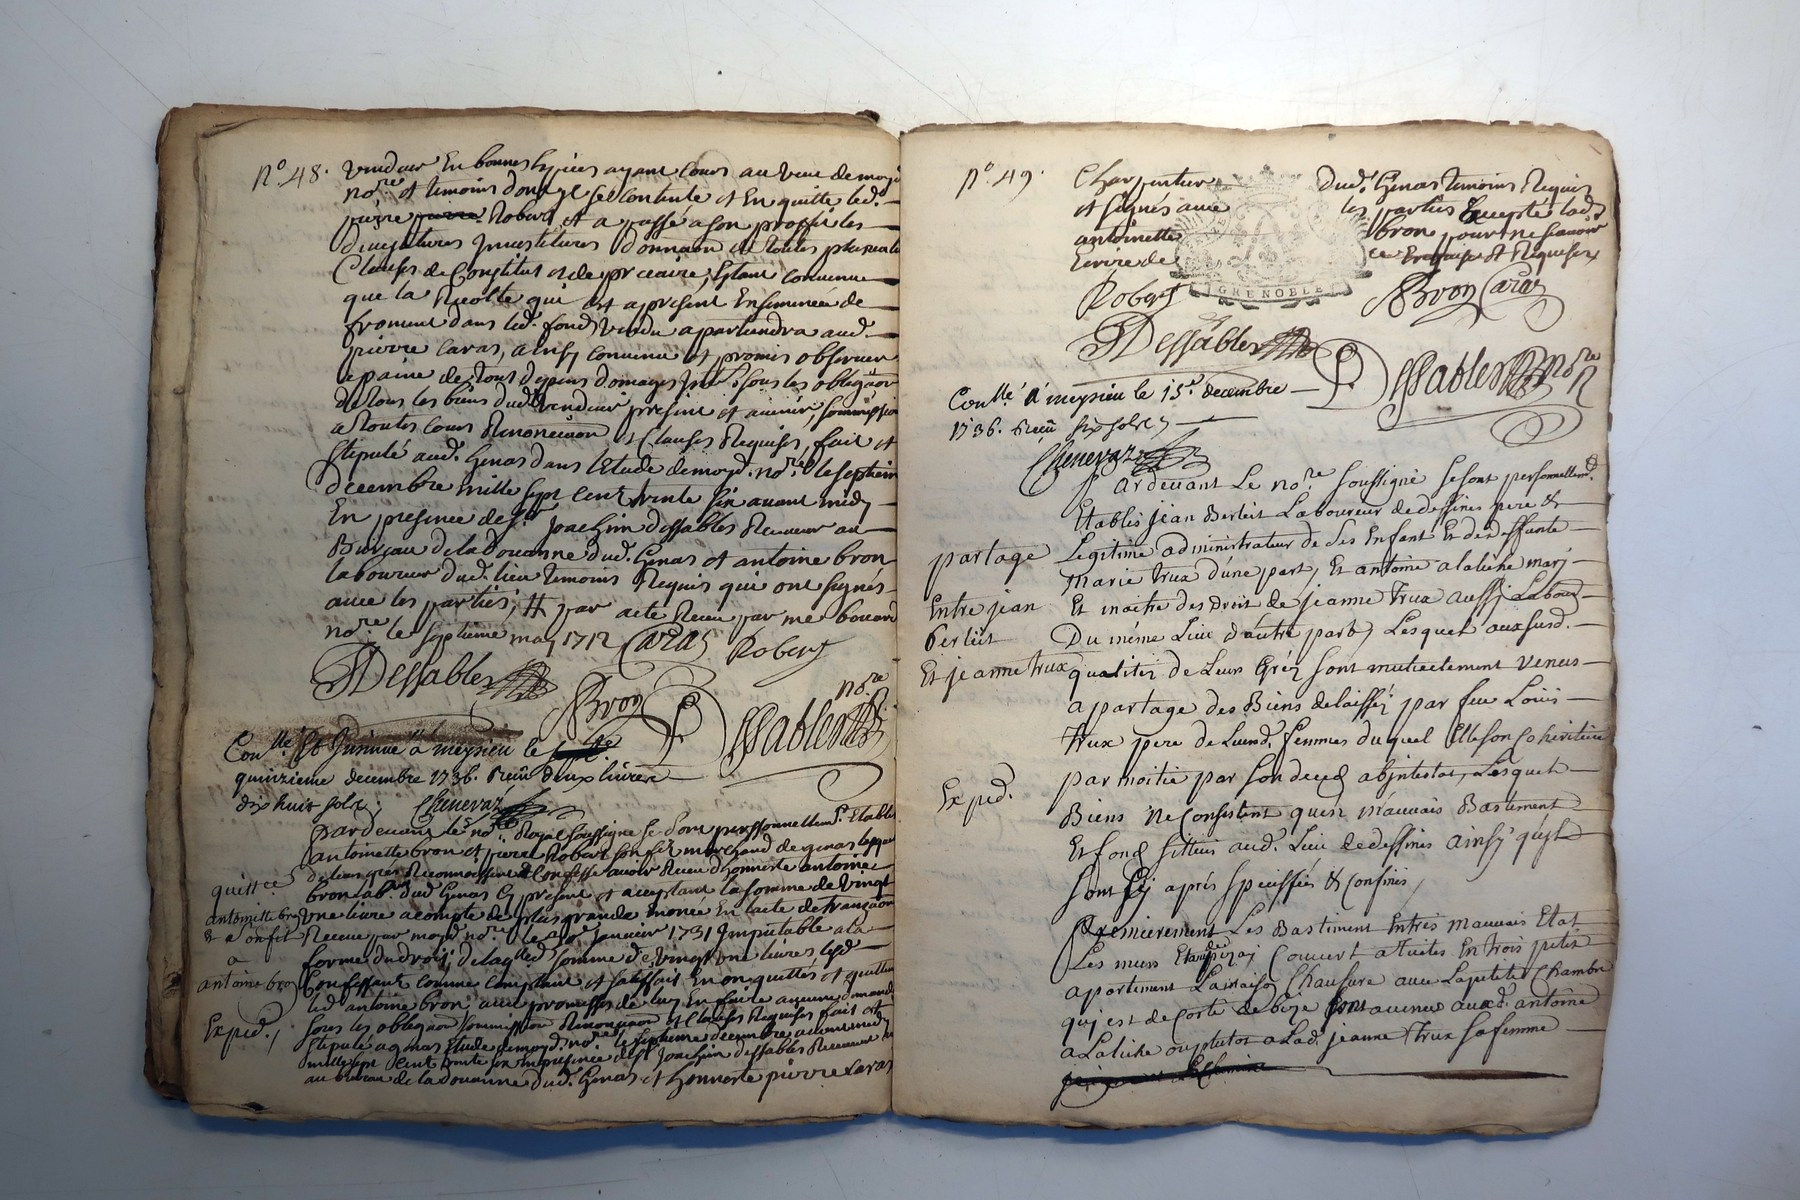 N.° 48.
vendeur En bonnes Espèces ayant Cours au veue de moyd
no.re et temoins dont yl se Contente et En quitte led.
pierre Robert et a passé a son proffit les
Clauses de Constitut et de precaire, Estant Convenue
que la Recolte qui est apresent Ensemencée de
froment dans led. fond vendu apartiendra aud.
pierre Caras, ainsy Convenu et promis observer
a paine de tout depens domages sous les obligaon
de tous les biens dud. vendeur present et avenir, sommission
a toutes Cours Renonciaon et Clauses Requises, fait et
stipulé aud. Genas dans l'Etude de moyd. no.re le septieme
decembre mille sept cent trente six avant midy
En presence de s.r joachin dessables Receveur au
Bureau de la Doüanne dud. Genas et antoine bron
laboureur dud. lieu temoins Requis qui ont signés
avec les parties, # par acte Receu par me bouard
no.re le septieme may 1712 Caras Robert
JDessables Bron P. Dessables no.re
Con.llé et Insinué a meysieu le
quinzieme decembre 1736. Receu deux livres
dix huit sols. Chenevaz
Pardevant le no.re Royal soussigné se sont personnellem.t Etablis
antoinette bron et pierre Robert son fils marchand de genas lesquels
de leurs gres Reconnoissent Confesse avoir Receu d'honneste antoine
quitt.ce
bron lab.r dud Genas Cy present et aceptant la somme de vingt
antoinette bron
une livre a compte de plus grande En l'acte de transaction
et a son fils
Receue par moyd no.re le janvier 1731 Imputable a la
a
forme du droit, de laq.lle somme de vingt une livres led.
antoine bron
Confessant comme comptant et satisfait En on quittés et quittent
led antoine bron avec promesses de luy En faire aucune demande
Exped.
sous les obligaon sommission Renonciaon et Clauses Requises fait et
stipulé a genas Etude de moyd. no.re le septieme decembre avant midy
mille sept Cent trente six En presence de s.r joachin dessables Receveur
au bureau de la doüanne dud. Genas et honneste pierre Caras
N.° 49.
Charpentier dud. Genas temoins Requis
et signés avec les parties Excepté lad.
antoinette bron pour ne savoir
Ecrire de ce Enquise et Requise
GRENOBLE
Robert Bron Caras
JDessables P. Dessables no.re
Con.llé a meysieu le 15.e decembre
1736. Receu six sols
Chenevaz
Pardevant Le no.re soussigné se sont personnellem.t
Etablis jean Berliet Laboureur de dessines pere &
partage
Legitime administrateur de ses Enfant Et de deffunte
marie trux d'une part, Et antoine alatiche mary
Entre jean
Et maitre des Droit de jeanne Trux aussy Labour
berliet
Du même Lieu d'autre part, Lesquel aux susd.
Et jeanne trux
qualités de Leurs Gréz sont mutuelement venus
a partage des Biens delaissés par feu Loüis
Trux pere de Leursd. femmes duquel Elle son Coheritiere
par moitié par son deced abjntestas, Lesquels
Exped.
Biens Ne Consistent qu'en mauvais Bastiment
Et fond sittuis aud. Lieu de dessines ainsy qu'jls
sont Cy aprés speciffiés & Confinés
Premierement Les Bastiment En tres mauvais Etat
Les murs Etant de pizay Couvert a tuiles En trois petit
apartement La maison Chausure avec La petite Chambre
quj est de Coste de bize sont avenus aud. antoine
alatiche ou plutot a Lad. jeanne Trux sa femme